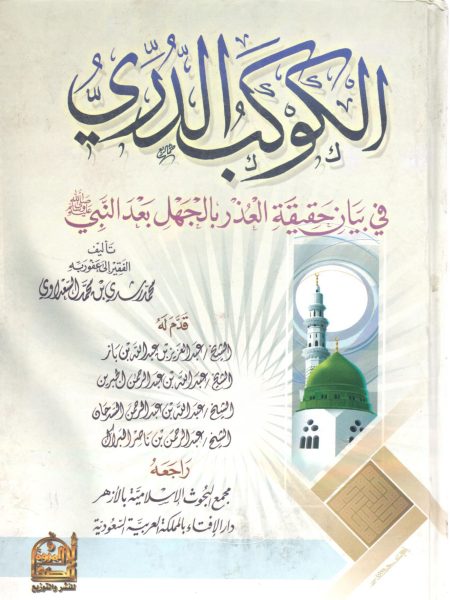 الكوكب الدُّرِّيُّ
في بيان حقيقة العذر بالجهل بعد النبي ﷺ
تأليف
الفقير إلى عفو ربه
محمد رشدي بن محمد السعداوي
قدَّم له
الشيخ/عبد العزيز بن عبد الله بن باز
الشيخ/عبد الله بن عبد الرحمن الجبرين
الشيخ/عبد الله بن عبد الرحمن السدحان
الشيخ/عبد الرحمن بن ناصر البراك
راجعه
مجمع البحوث الإسلامية بالأزهر
دار الإفتاء بالمملكة العربية السعودية
للنشر والتوزيع